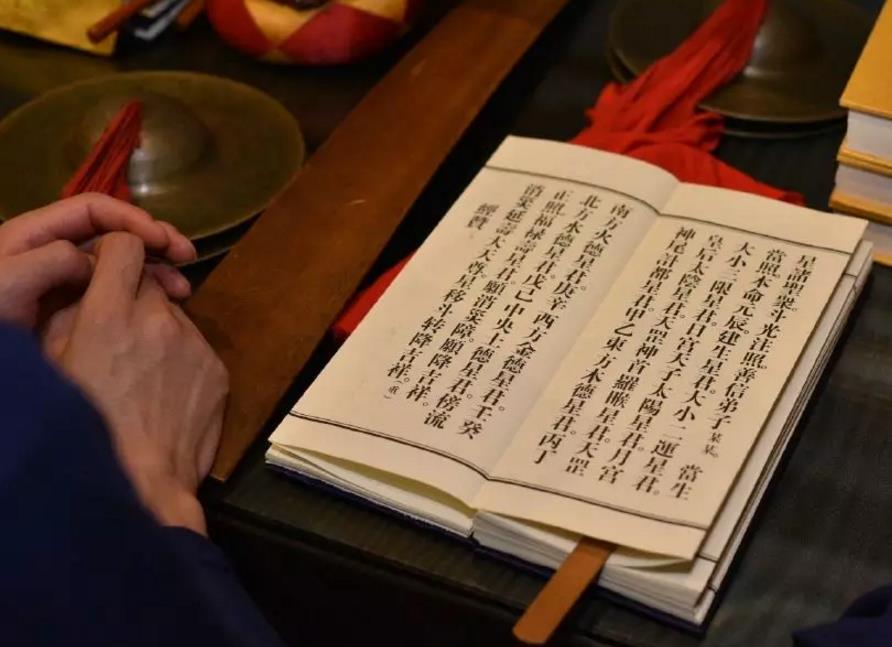 星諸聖衆。斗光注照。善信弟子某某。當生
當照本命元辰。建生星君。大小二運星君。
大小三限星君。日宮天子太陽星君。月宮
皇后太陰星君。天罡神首羅睺星君。天罡
神尾計都星君。甲乙東方木德星君。丙丁
南方火德星君。庚辛西方金德星君。壬癸
北方水德星君。戊己中央土德星君。傍流
正照。福祿壽星君。願消災障。願降吉祥。
消災延壽大天尊。星移斗转降吉祥。(重)
經贊